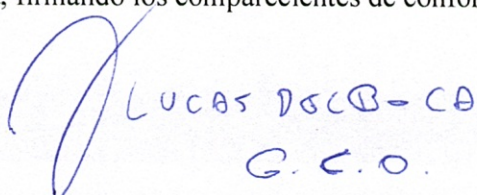 , firmando los comparecientes de confor
LUCAS DELBO-CA
G. C. O.